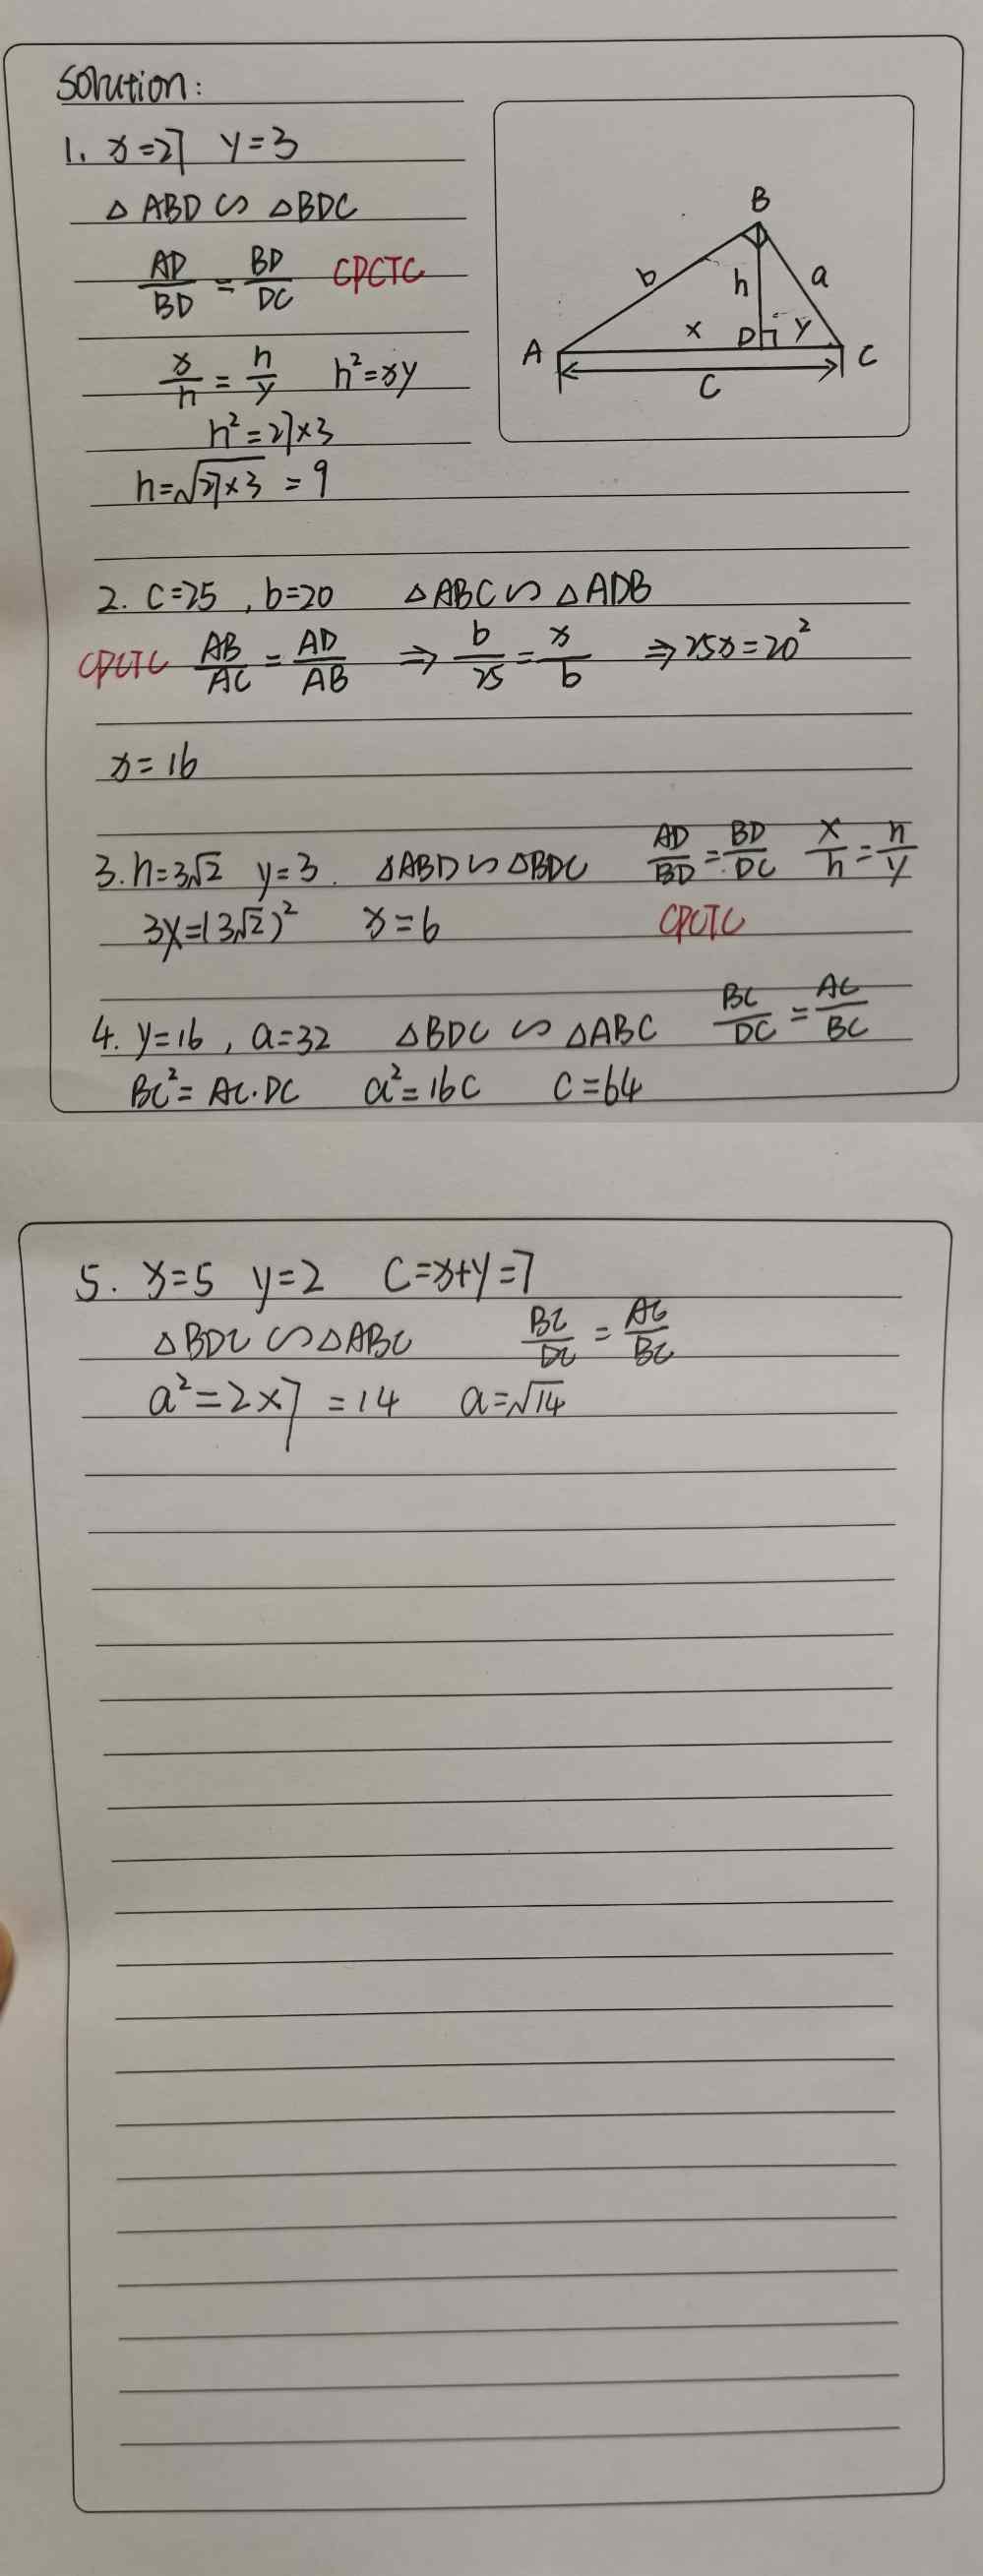 Solution:
1. x=27 y=3
△ABD ∽ △BDC
AD/BD = BD/DC CPCTC
x/h = h/y h²=xy
h²=27×3
h=√27×3 =9
B
b
h
a
A
x
D
y
C
C
2. c=25, b=20 △ABC ∽ △ADB
CPCTC AB/AC = AD/AB ⇒ b/25 = x/b ⇒ 25x=20²
x=16
3. h=3√2 y=3. △ABD ∽ △BDC AD/BD = BD/DC x/h = h/y
3x=(3√2)² x=6 CPCTC
4. y=16, a=32 △BDC ∽ △ABC BC/DC = AC/BC
BC²=AC·DC a²=16C C=64
5. x=5 y=2 C=x+y=7
△BDC ∽ △ABC BC/DC = AC/BC
a²=2×7 =14 a=√14